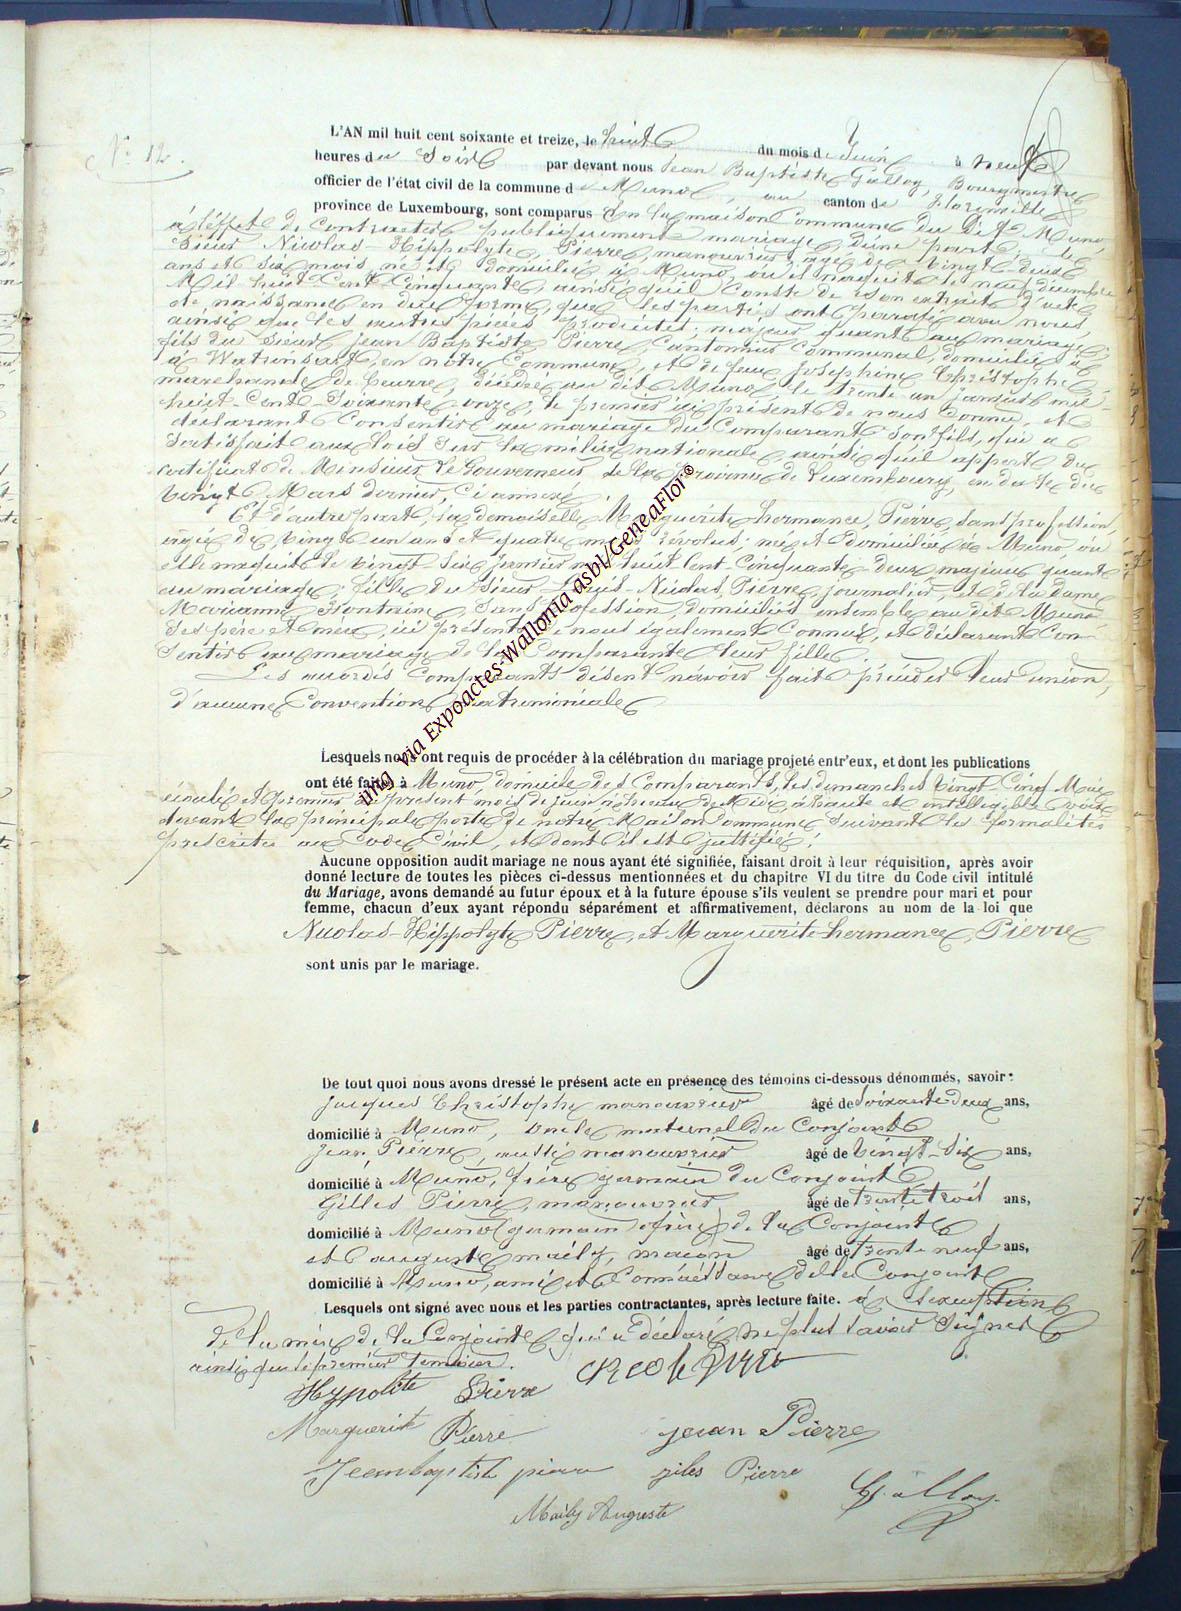 N° 12.
L'AN mil huit cent soixante et treize, le huit du mois de Juin à neuf
heures du Soir par devant nous Jean Baptiste Galloy, Bourgmestre
officier de l'état civil de la commune de Muno, au canton de Florenville
province de Luxembourg, sont comparus En la maison Commune du Dit Muno
à l'effet de contracter publiquement mariage, d'une part, le
Sieur Nicolas-Hippolyte, Pierre, manouvrier, âgé de vingt deux
ans et six mois né et domicilié à Muno, où il naquit le neuf décembre
Mil huit Cent Cinquante, ainsi qu'il Conste de son extrait d'acte
de naissance en due forme, que les parties ont paraphé avec nous
ainsi que les autres pièces produites; majeur quant au mariage;
fils du Sieur Jean Baptiste Pierre, Cantonnier Communal, domicilié à
à Watrinsart, en notre Commune, et de feue Joséphine Christophe,
marchande de beurre, décédée au dit Muno, le trente un janvier mil-
huit-Cent-Soixante onze, le premier ici présent de nous Connu, et
déclarant Consentir au mariage du Comparant son fils, qui a
Satisfait aux lois sur la milice nationale ainsi qu'il appert du
certificat de Monsieur le Gouverneur de la Province de Luxembourg, en date du
vingt Mars dernier, ci annexé.
Et d'autre part, la demoiselle Marguerite-hermance, Pierre, Sans profession,
âgée de vingt un ans et quatre mois révolus; née et domiciliée à Muno, où
elle naquit le vingt Six janvier mil huit Cent Cinquante-deux majeure quant
au mariage; fille du Sieur Louis-Nicolas, Pierre, journalier, et de la dame
Marianne Fontaine, Sans profession, domiciliés ensemble au dit Muno
Ses père et mère, ici présents, de nous également Connus, et déclarant Con-
Sentir au mariage de la Comparante leur fille.
Les accordés Comparants disent n'avoir fait précéder leur union,
d'aucune Convention matrimoniale
Lesquels nous ont requis de procéder à la célébration du mariage projeté entr'eux, et dont les publications
ont été faites à Muno, domicile des Comparants, les dimanches vingt-Cinq Mai
écoulé et premier du présent mois de juin à heure de Midi, à haute et intelligible voix
devant la principale porte de notre Maison Commune Suivant les formalités
prescrites au Code Civil, et dont il est justifié;
Aucune opposition audit mariage ne nous ayant été signifiée, faisant droit à leur réquisition, après avoir
donné lecture de toutes les pièces ci-dessus mentionnées et du chapitre VI du titre du Code civil intitulé
du Mariage, avons demandé au futur époux et à la future épouse s'ils veulent se prendre pour mari et pour
femme, chacun d'eux ayant répondu séparément et affirmativement, déclarons au nom de la loi que
Nicolas-Hippolyte Pierre, et Marguerite-hermance, Pierre
sont unis par le mariage.
De tout quoi nous avons dressé le présent acte en présence des témoins ci-dessous dénommés, savoir:
Jacques Christophe manouvrier âgé de Soixante deux ans,
domicilié à Muno, oncle maternel du Conjoint
Jean, Pierre, aussi manouvrier âgé de vingt-Six ans,
domicilié à Muno, frère germain du Conjoint
Gilles Pierre, manouvrier âgé de trente trois ans,
domicilié à Muno (germain frère) de la Conjointe
et Auguste maily, maçon âgé de trente neuf ans,
domicilié à Muno, ami et Connaissance de la Conjointe
Lesquels ont signé avec nous et les parties contractantes, après lecture faite. à l'exception
de la mère de la Conjointe qui a déclaré ne plus Savoir Signer
ainsi que le premier témoin.
Hyppolite Pierre
Marguerite Pierre jean Pierre
Jeanbaptiste pierre giles Pierre
Maily Auguste Galloy
img via Expoactes-Wallonia asbl/GeneaFlor©